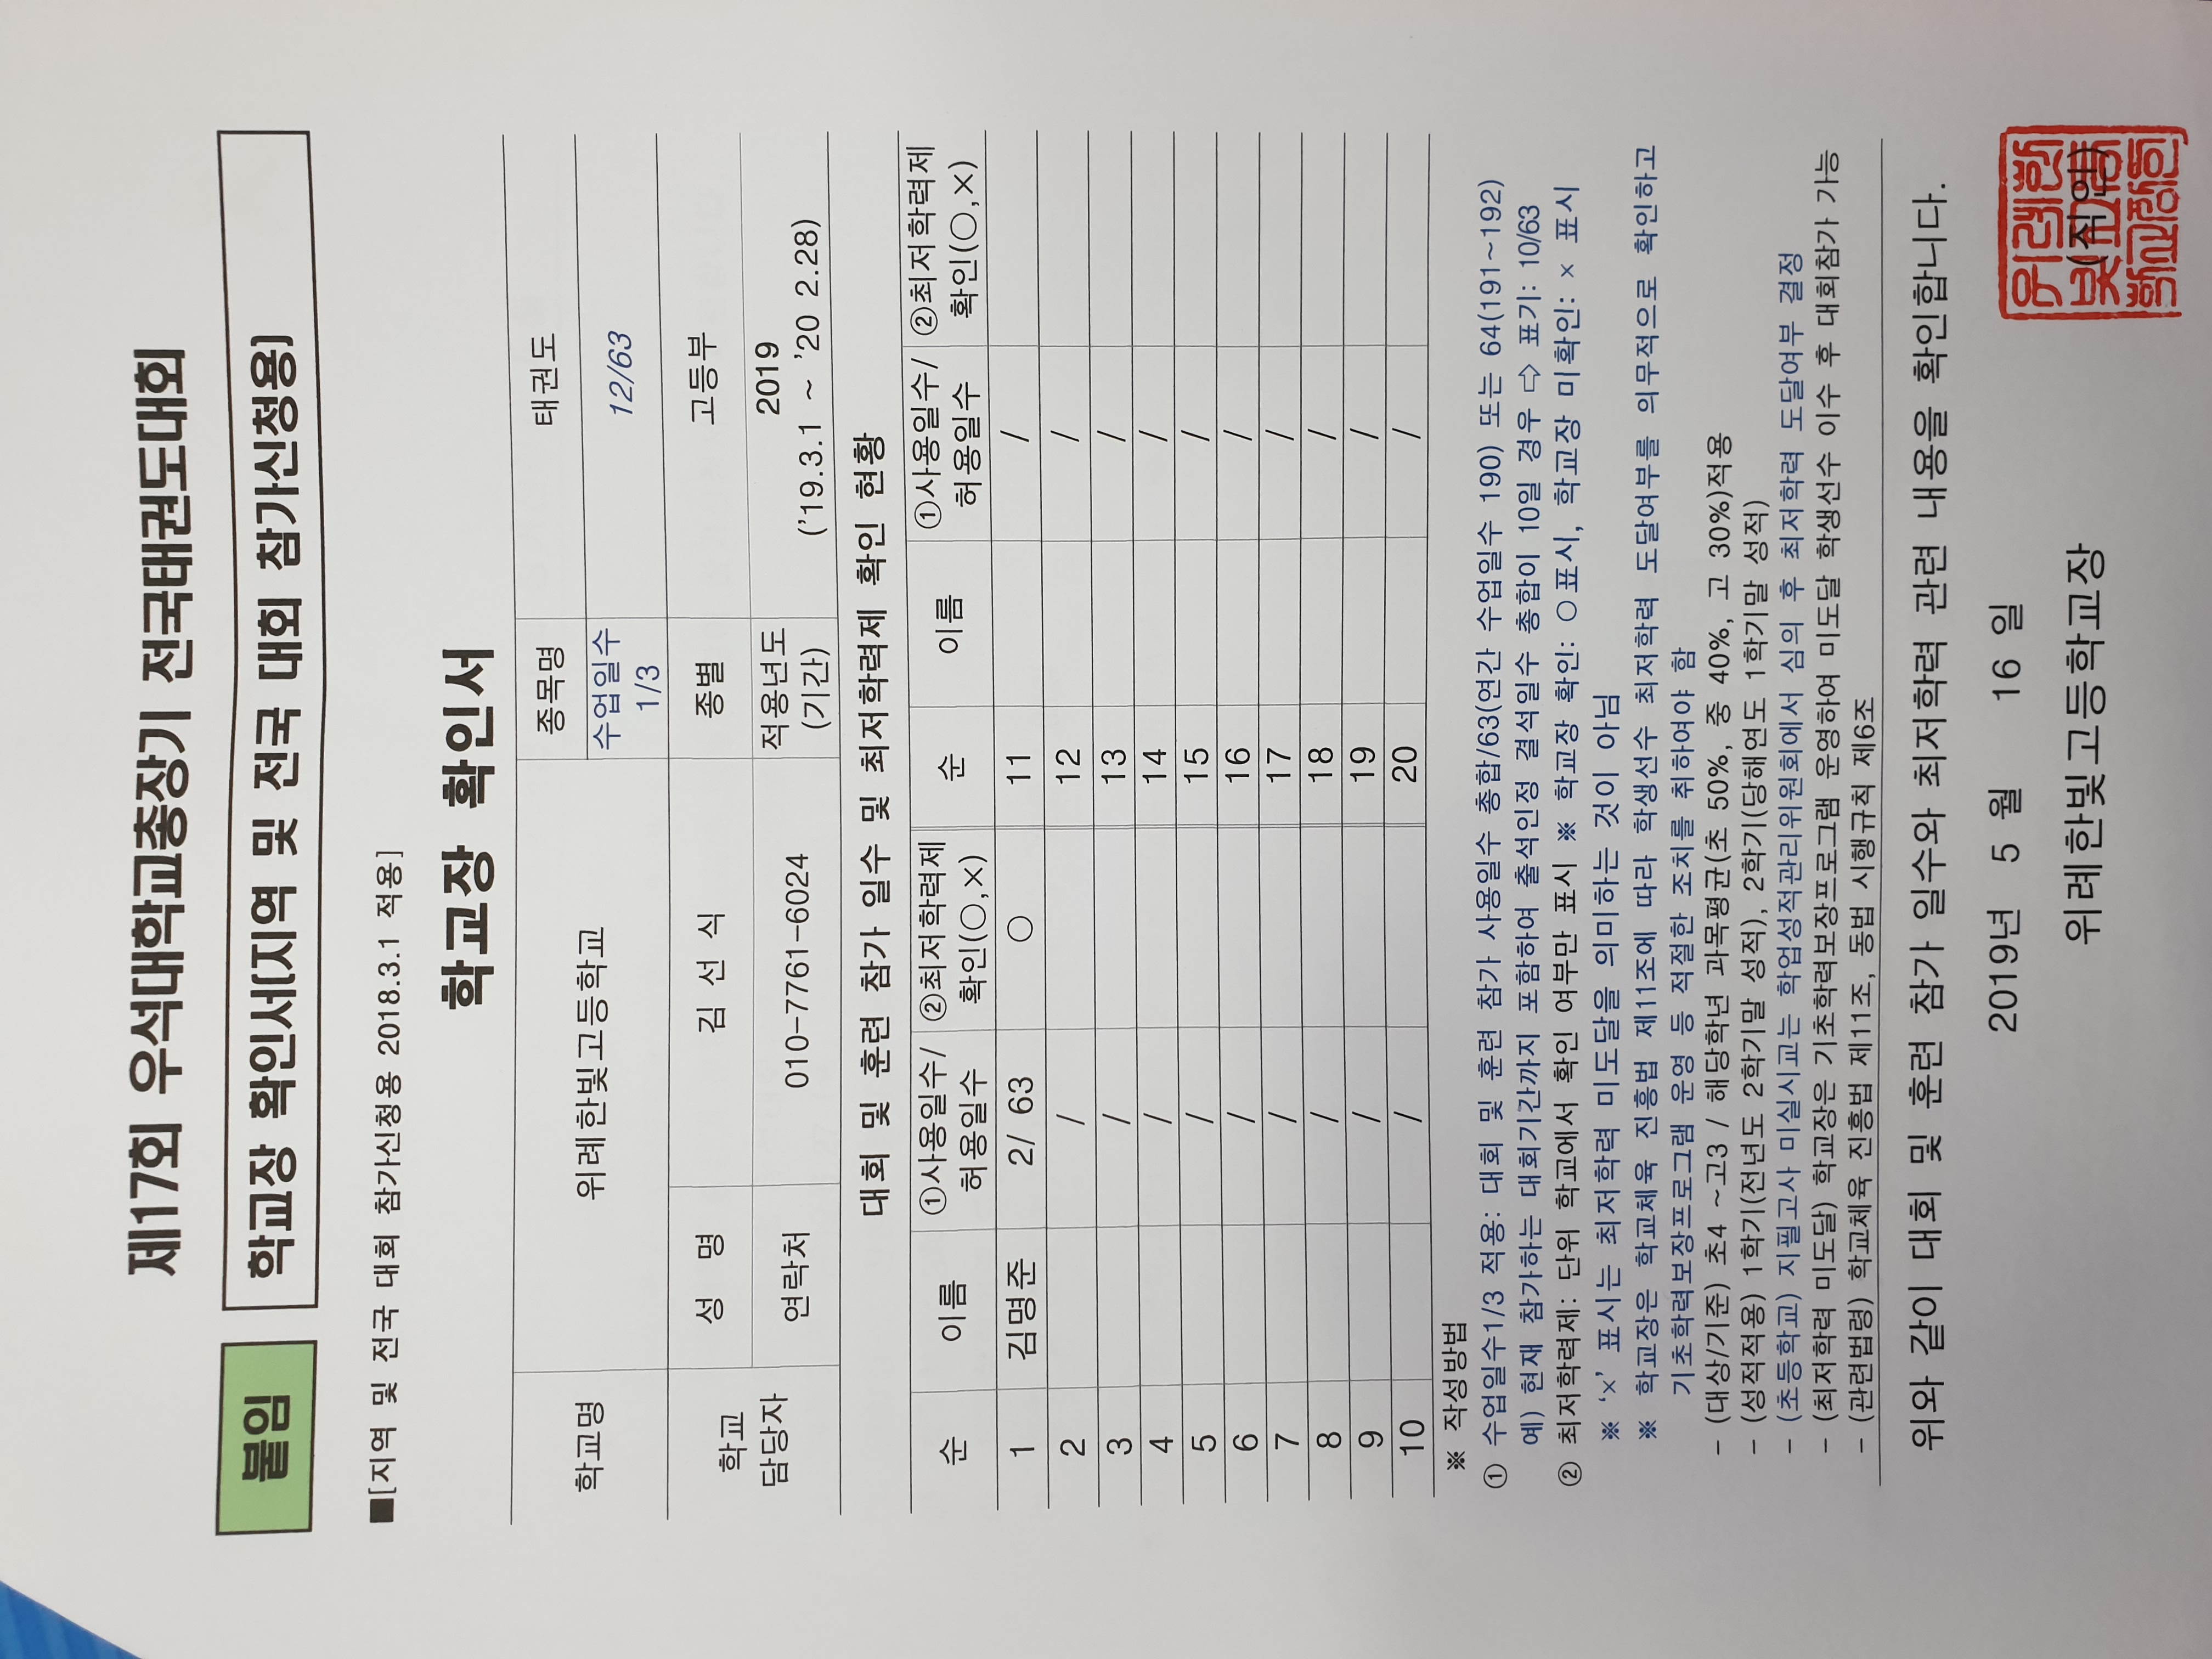 제17회 우석대학교총장기 전국태권도대회
붙임 학교장 확인서(지역 및 전국 대회 참가신청용)
■[지역 및 전국 대회 참가신청용 2018.3.1 적용]
학교장 확인서
학교명 위례한빛고등학교 종목명 태권도
수업일수 1/3 12/63
학교 담당자 성 명 김 선 식 종별 고등부
연락처 010-7761-6024 적용년도 (기간) 2019 ('19.3.1 ~ '20 2.28)
대회 및 훈련 참가 일수 및 최저학력제 확인 현황
순 이름 ①사용일수/허용일수 ②최저학력제 확인(○,×) 순 이름 ①사용일수/허용일수 ②최저학력제 확인(○,×)
1 김명준 2/ 63 ○ 11 /
2 / 12 /
3 / 13 /
4 / 14 /
5 / 15 /
6 / 16 /
7 / 17 /
8 / 18 /
9 / 19 /
10 / 20 /
※ 작성방법
① 수업일수1/3 적용: 대회 및 훈련 참가 사용일수 총합/63(연간 수업일수 190) 또는 64(191~192)
예) 현재 참가하는 대회기간까지 포함하여 출석인정 결석일수 총합이 10일 경우 ⇨ 표기: 10/63
② 최저학력제: 단위 학교에서 확인 여부만 표시 ※ 학교장 확인: ○표시, 학교장 미확인: × 표시
※ ‘×’ 표시는 최저학력 미도달을 의미하는 것이 아님
※ 학교장은 학교체육 진흥법 제11조에 따라 학생선수 최저학력 도달여부를 의무적으로 확인하고
기초학력보장프로그램 운영 등 적절한 조치를 취하여야 함
- (대상/기준) 초4 ~고3 / 해당학년 과목평균(초 50%, 중 40%, 고 30%)적용
- (성적적용) 1학기(전년도 2학기말 성적), 2학기(당해연도 1학기말 성적)
- (초등학교) 지필고사 미실시교는 학업성적관리위원회에서 심의 후 최저학력 도달여부 결정
- (최저학력 미도달) 학교장은 기초학력보장프로그램 운영하여 미도달 학생선수 이수 후 대회참가 가능
- (관련법령) 학교체육 진흥법 제11조, 동법 시행규칙 제6조
위와 같이 대회 및 훈련 참가 일수와 최저학력 관련 내용을 확인합니다.
2019년 5 월 16 일
위례한빛고등학교장 (직인)